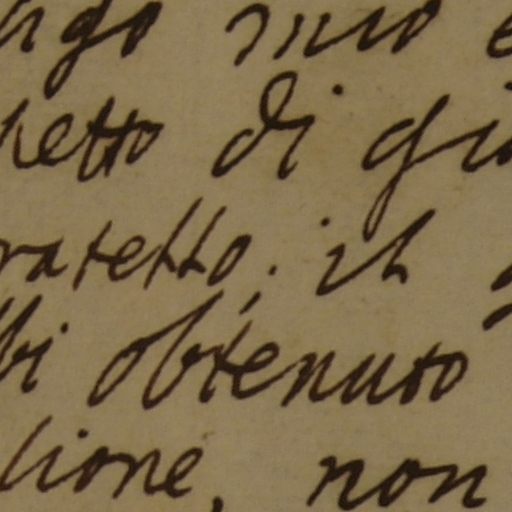 ngo mio e
hetto di gi
ratello; il
bi obtenuto
lione, non